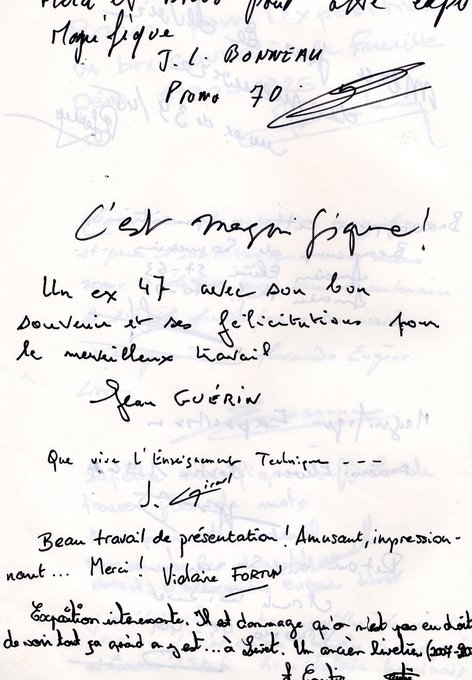 Magnifique
J. L. BONNEAU
Promo 70
C'est magnifique !
Un ex 47 avec son bon
souvenir et ses félicitations pour
le merveilleux travail
Jean GUÉRIN
Que vive l'Enseignement Technique ---
J.
Beau travail de présentation ! Amusant, impression-
nant... Merci ! Violaine FORTIN
Exposition interessante. Il est dommage qu'on n'est pas en droit
de voir tout ça quand on y est... à Livet. Un ancien livetien (2007-20